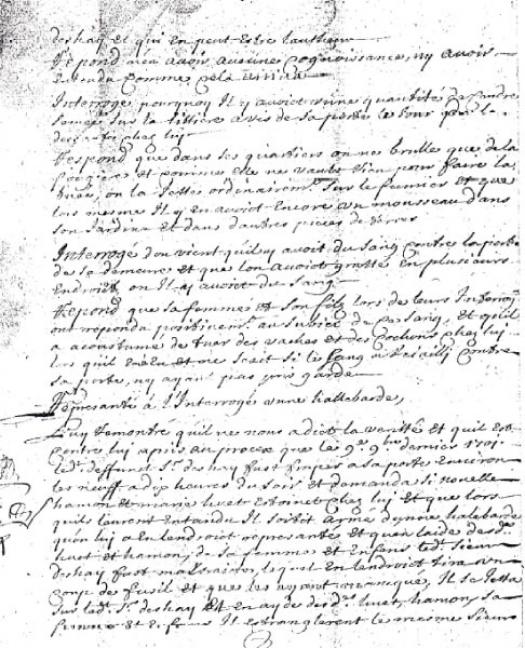 deshay et qui en peut estre lautheur
Respond n'en avoir aucune cognoissance, ny avoir
entendu comme cela
Interrogé pourquoy Il y avoist une quantité de cendre
semée sur la littiere a vis de sa porte le jour que la
chez luy
Respond que dans ses quartiers on ne brulle que de la
et comme elle ne vault rien pour faire la
buée, on la jette ordenairemt sur le fumier et que
lors mesme Il y en avoict encore un monsseau dans
son Jardin et dans dautres pieces de terres
Interrogé dou vient quil y avoit du sang contre la porte
de sa demeure et que lon avoict gratté en plusieurs
endroits ou Il y avoict du sang
Respond que sa femme et son filz lors de leurs Interrog
ont respondu au subiect de ce sang, et quil
a acoustume de tuer des vaches et des cochons chez luy
et ne scait si le sang a rejailly contre
sa porte, ny ayant pas pris garde
Representé à l'Interrogé une hallebarde,
Luy remontré quil ne nous a dict la verité et quil est
contre luy apris au proces que le 9e 9bre dernier
ledt deffunct Sr deshay fust fraper a sa porte environ
les neuff a dix heures du soir et demanda si
hamon et marie huet estoinct chez luy et que lors
quils leurent entandu Il sortit armé d'une halebarde
quon luy a en lendroict representé et quen laide desdts
huet et hamon, de sa femme et enfens ledt sieur
deshay fust malsaicté, lequel en lendroict tira un
coup de fusil et que les ayant manqué, Il se jetta
sur ledt Sr deshay et en ayde desdts huet, hamon, sa
femme et Il estranglerent le mesme sieur